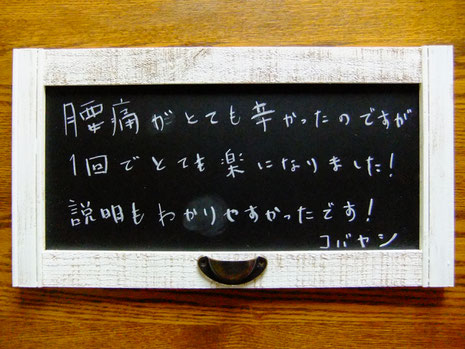 腰痛がとても辛かったのですが
1回でとても楽になりました!
説明もわかりやすかったです!
コバヤシ